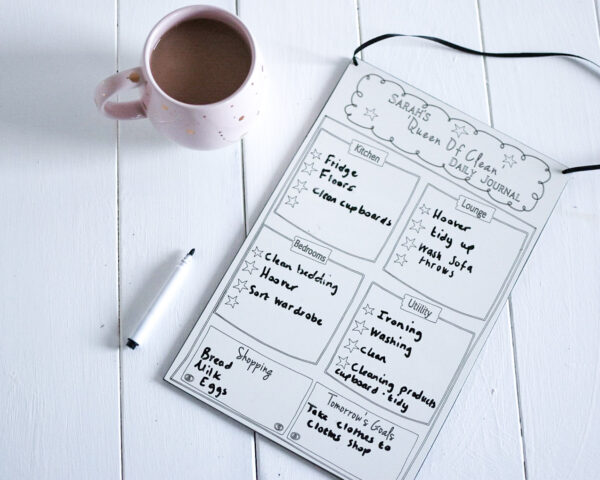 SARAH'S
'Queen Of Clean'
DAILY JOURNAL
Kitchen
Fridge
Floors
Clean cupboards
Lounge
Hoover
tidy up
Wash Sofa
throws
Bedrooms
Clean bedding
Hoover
Sort wardrobe
Utility
Ironing
Washing
Clean
Cleaning products
cupboard - tidy
Shopping
Bread
Milk
Eggs
Tomorrow's Goals
Take clothes to
Clothes shop